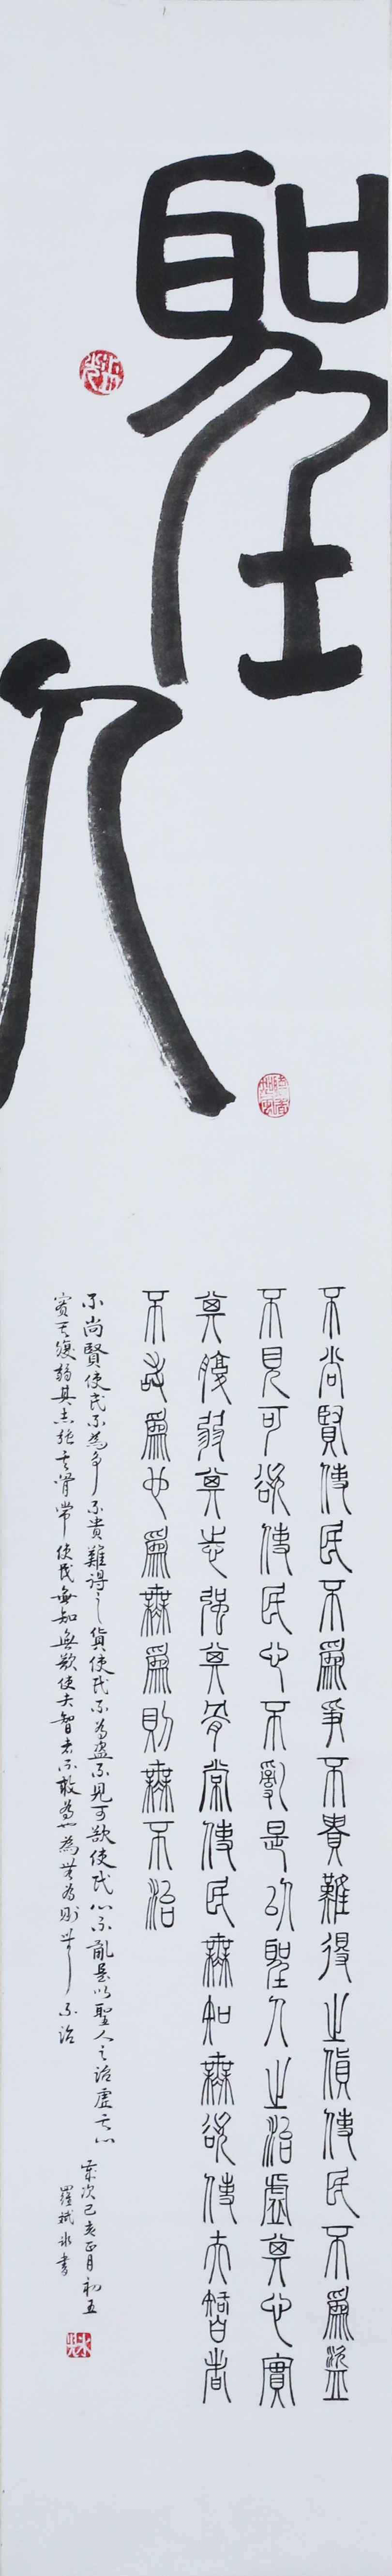 聖
人
不尚賢使民不爲爭不貴難得之貨使民不爲盜
不見可欲使民心不亂是以聖人之治虛其心實
其腹弱其志強其骨常使民無知無欲使夫智者
不敢爲也爲無爲則無不治
不尚賢使民不為爭不貴難得之貨使民不為盜不見可欲使民心不亂是以聖人之治虛其心
實其腹弱其志強其骨常使民無知無欲使夫智者不敢為也為無為則無不治
歲次己亥正月初五
羅冰書